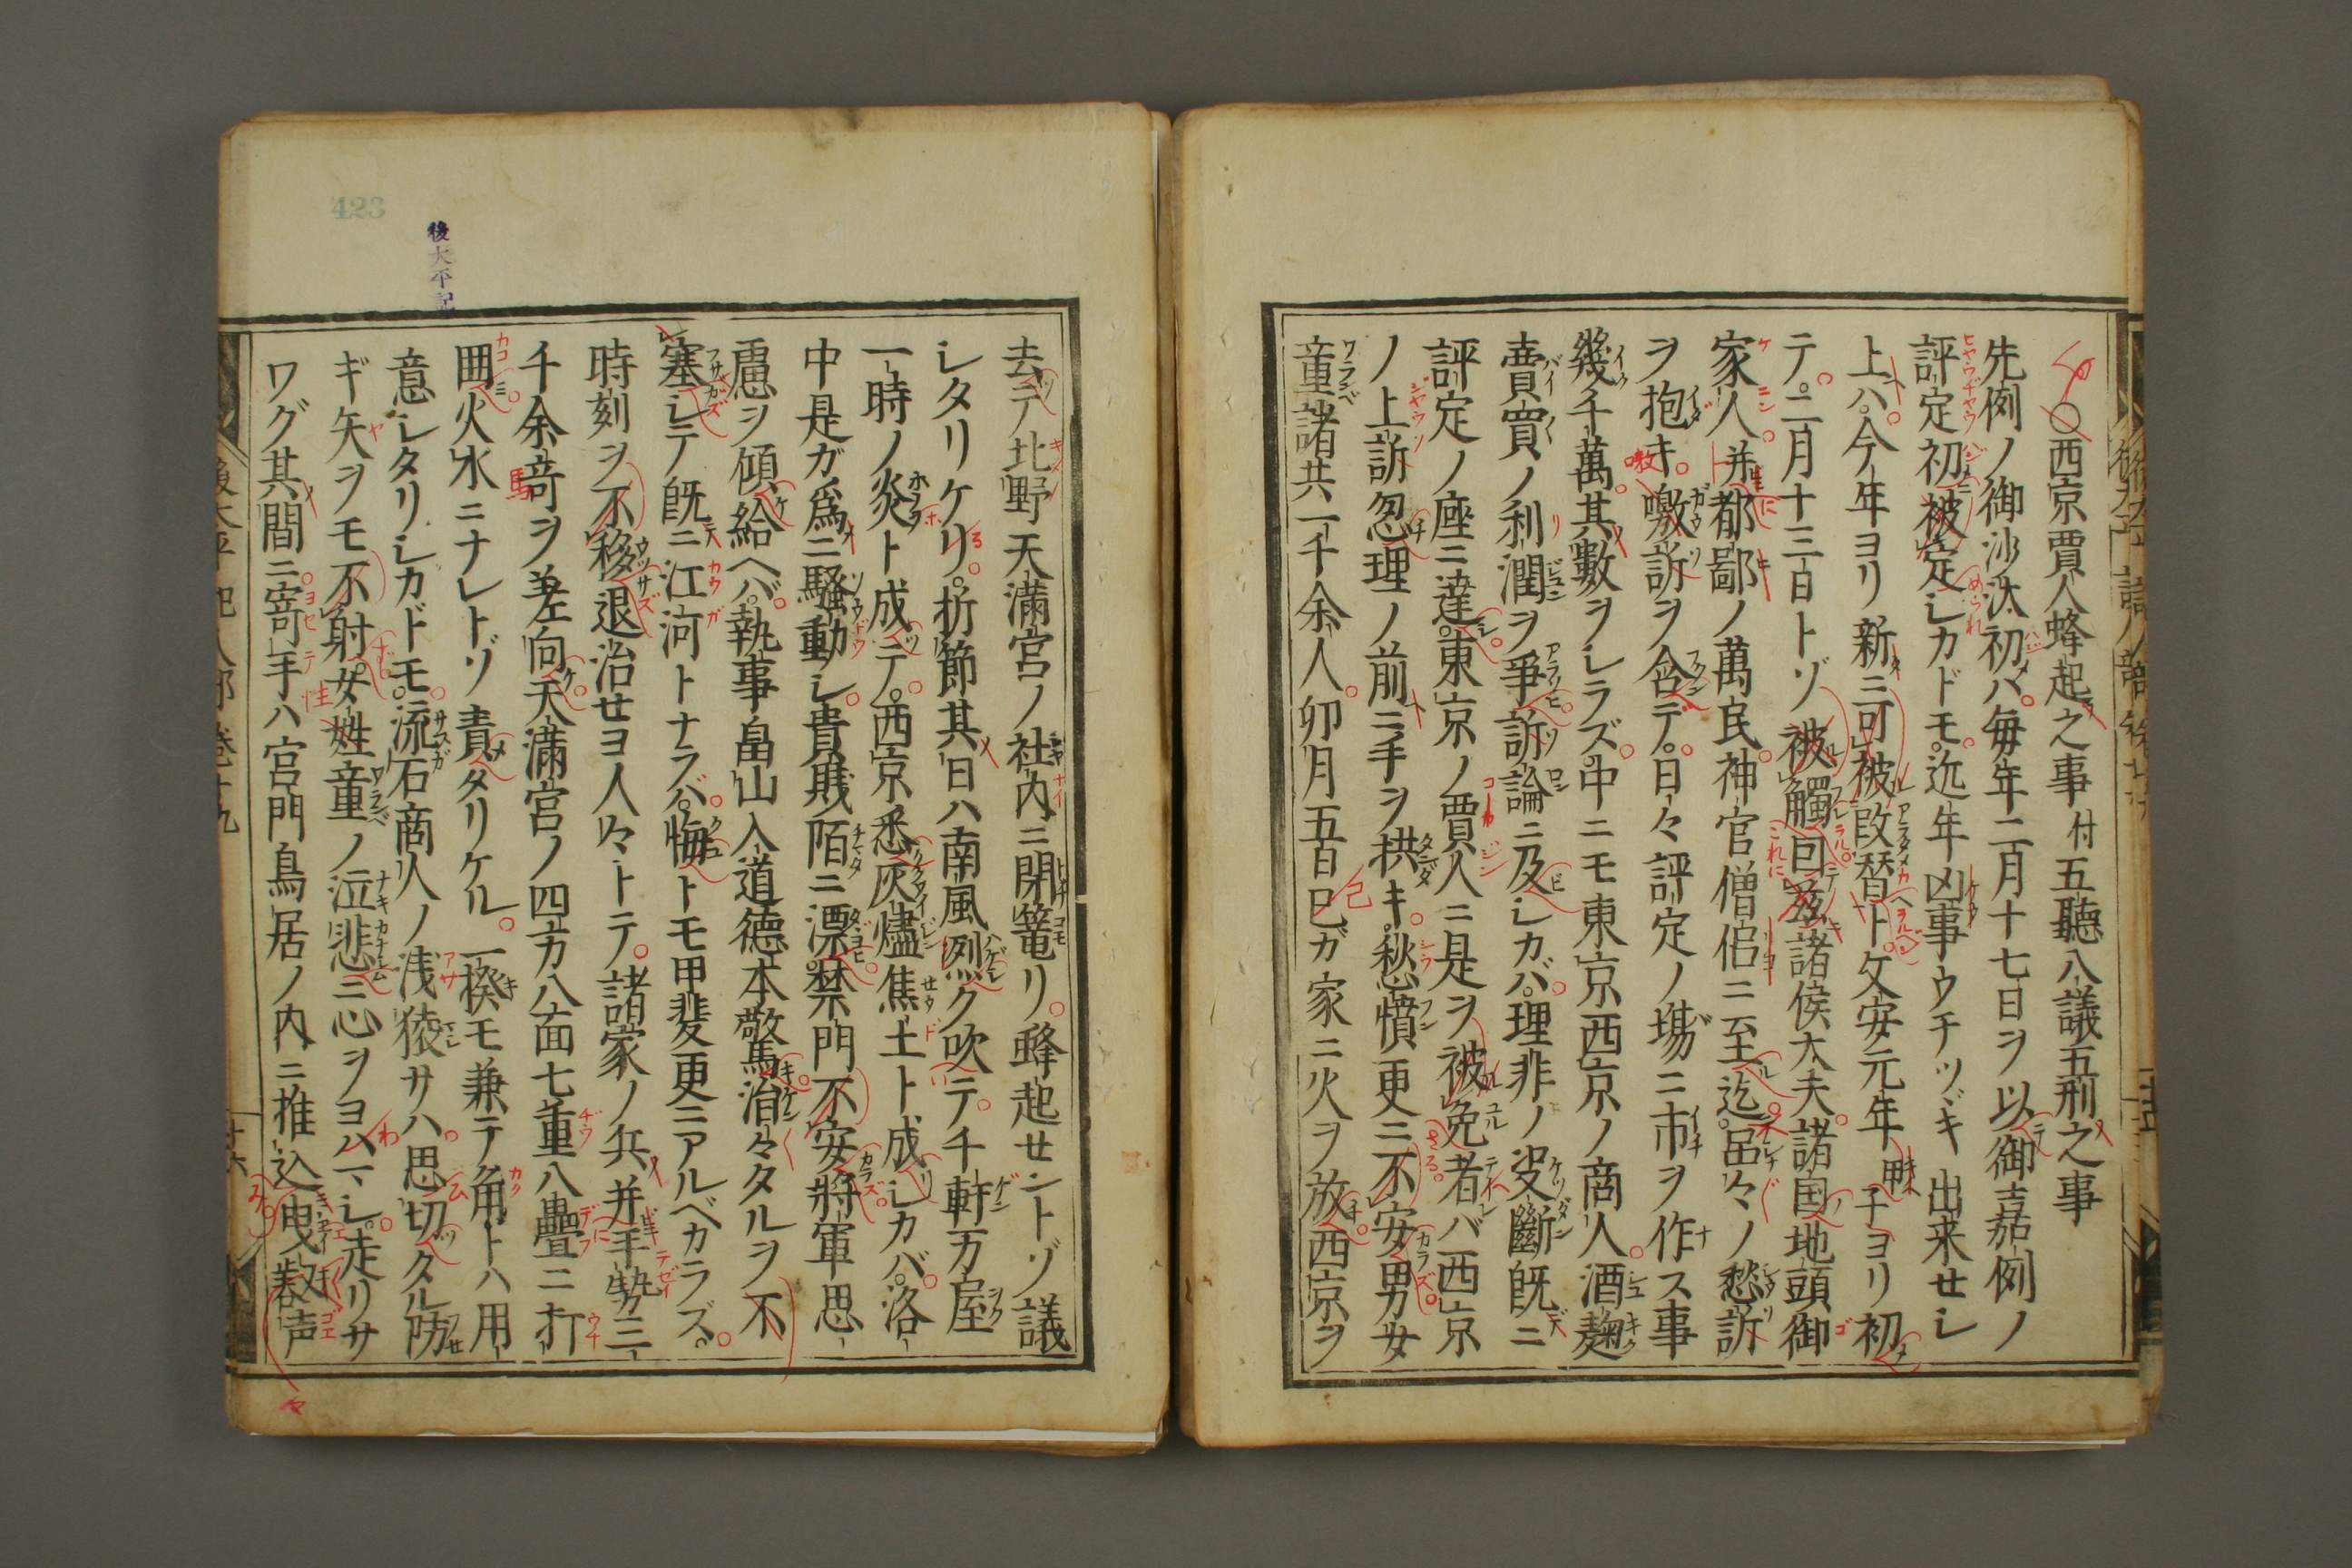 ○西京賈人蜂起之事付五聽八議五刑之事
先例ノ御沙汰初ハ毎年二月十七日ヲ以御嘉例ノ
評定初被定シカドモ近年凶事ウチツヾキ出来セシ
上ハ今年ヨリ新ニ可被改替ト文安元年甲子ヨリ初
テ二月十三日トゾ被觸回茲諸侯大夫諸国地頭御
家人并都鄙ノ萬民神官僧侶ニ至迄区々ノ愁訴
ヲ抱キ嗷訴ヲ含テ日々評定ノ場ニ市ヲ作ス事
幾千萬其數ヲシラズ中ニモ東京西京ノ商人酒麹
賣買ノ利潤ヲ爭訴論ニ及シカバ理非ノ决斷既ニ
評定ノ座ニ達東京ノ賈人ニ是ヲ被免者バ西京
ノ上訴忽理ノ前ニ手ヲ拱キ愁憤更ニ不安男女
童諸共一千余人卯月五日巳ガ家ニ火ヲ放西京ヲ
去テ北野天滿宮ノ社内ニ閉篭リ蜂起セントゾ議
シタリケリ折節其日ハ南風烈ク吹テ千軒万屋
一時ノ炎ト成テ西京悉灰燼焦土ト成シカバ洛
中是ガ爲ニ騷動シ貴賎陌ニ漂禁門不安將軍思
慮ヲ傾給ヘバ執事畠山入道德本敬馬治々タルヲ不
塞シテ既ニ江河トナラバ悔トモ甲斐更ニアルベカラズ
時刻ヲ不移退治セヨ人々トテ諸家ノ兵并手勢三
千余竒ヲ差向天滿宮ノ四方八面七重八疊ニ打
囲火水ニナレトゾ責タリケル一揆モ兼テ角トハ用
意シタリシカドモ流石商人ノ浅猿サハ思切タル防
ギ矢ヲモ不射女姓童ノ泣悲ニ心ヲヨハマシ走リサ
ワグ其間ニ寄手ハ宮門鳥居ノ内ニ推込曳々声
後太平記
423